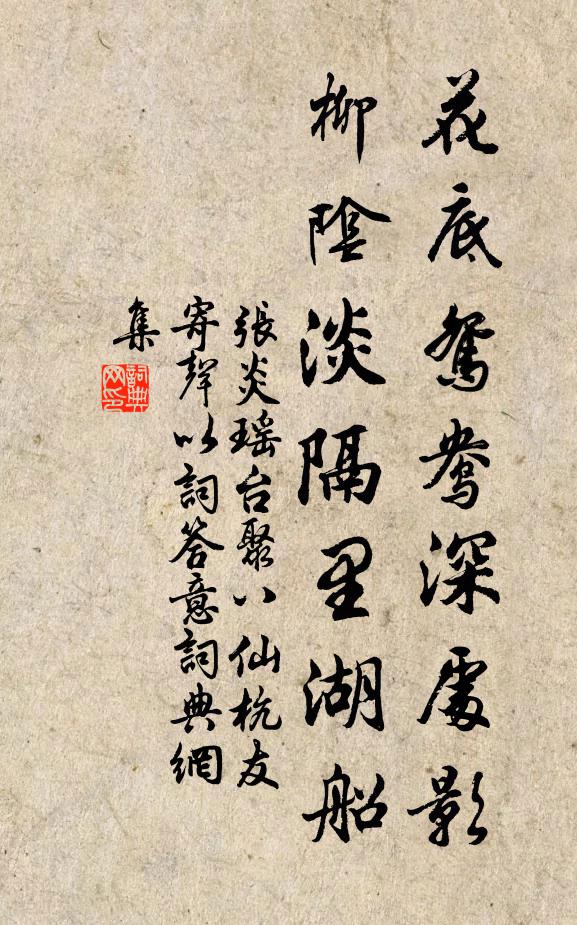 花底鴛鴦深處影
柳陰淡隔里湖船
張炎瑤台聚八仙杭友
寄聲以詞答意詞典網
集
詞典
网印